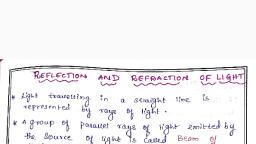 REFLECTION AND REFRACTION OF LIGHT
* Light travelling in a straight line is
represented by rays of light.
* A group of parallel rays of light emitted by
the source of light is called Beam of